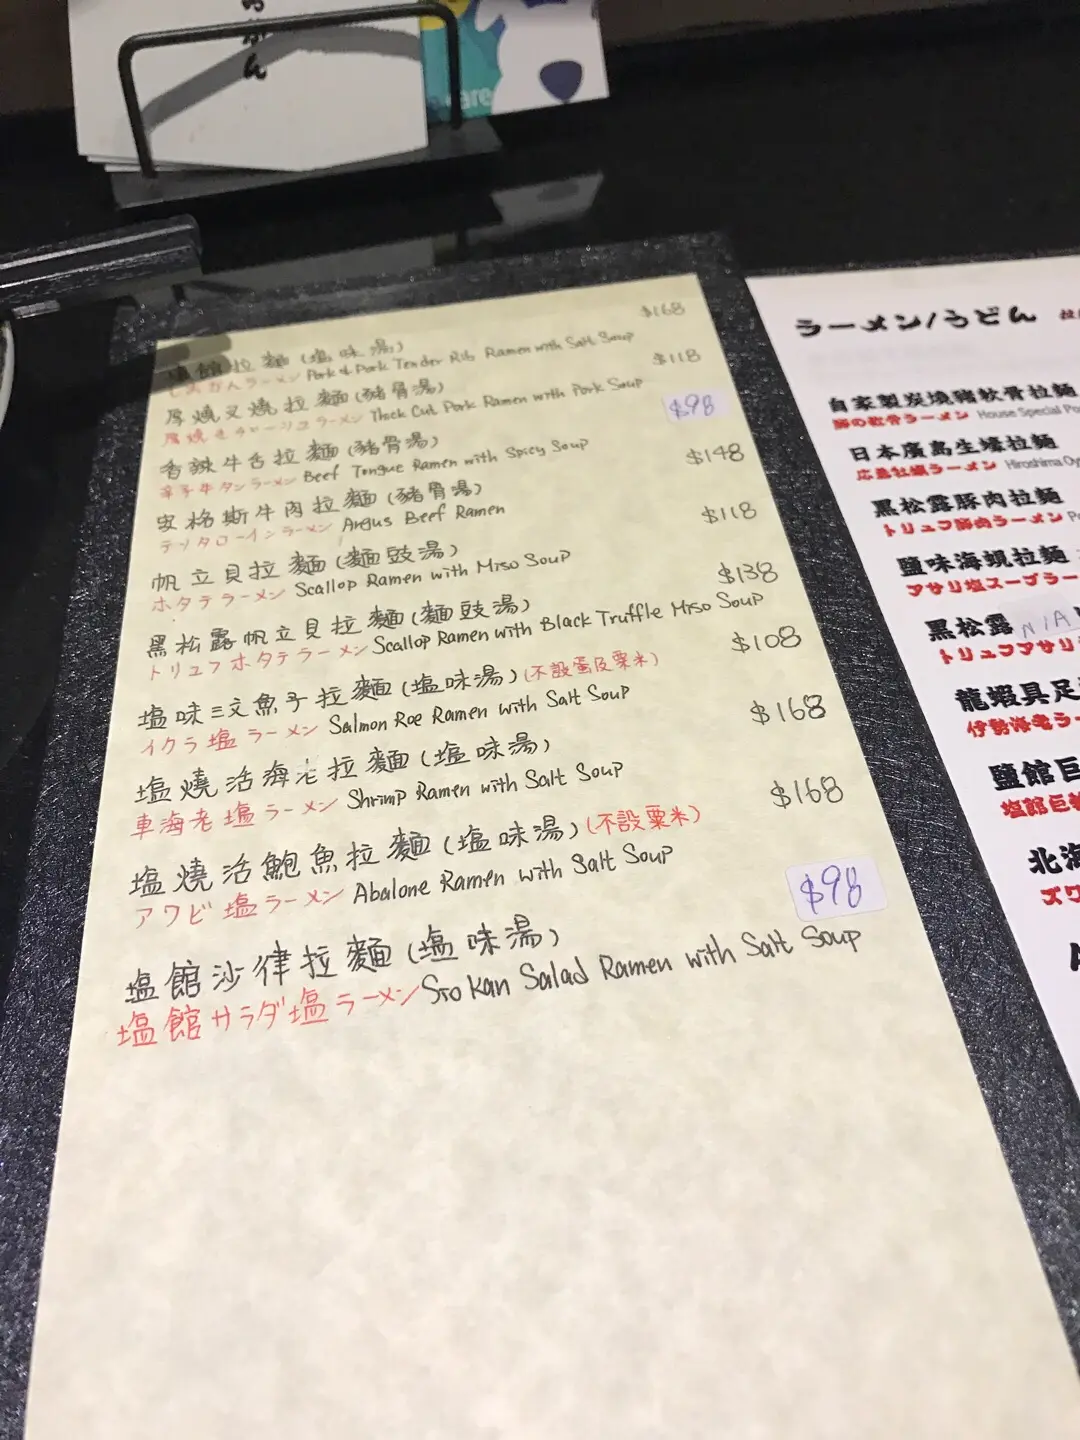 care
$168
塩館拉麵(塩味湯)
しおかんラーメン Pork & Pork Tender Rib Ramen with Salt Soup
$118
厚燒叉燒拉麵(豬骨湯)
厚焼きチャーシューラーメン Thick Cut Pork Ramen with Pork Soup
$98
香辣牛舌拉麵(豬骨湯)
辛子牛タンラーメン Beef Tongue Ramen with Spicy Soup
$148
安格斯牛肉拉麵(豬骨湯)
テリタローインラーメン Angus Beef Ramen
$118
帆立貝拉麵(麵豉湯)
ホタテラーメン Scallop Ramen with Miso Soup
$138
黑松露帆立貝拉麵(麵豉湯)
トリュフホタテラーメン Scallop Ramen with Black Truffle Miso Soup
$108
塩味三文魚子拉麵(塩味湯)(不設蛋及粟米)
イクラ塩ラーメン Salmon Roe Ramen with Salt Soup
$168
塩燒活海老拉麵(塩味湯)
車海老塩ラーメン Shrimp Ramen with Salt Soup
$168
塩燒活鮑魚拉麵(塩味湯)(不設粟米)
アワビ塩ラーメン Abalone Ramen with Salt Soup
$98
塩館沙律拉麵(塩味湯)
塩館サラダ塩ラーメン Sio Kan Salad Ramen with Salt Soup
ラーメン/うどん
自家製炭燒豬軟骨拉麵
豚の軟骨ラーメン House Special
日本廣島生蠔拉麵
広島牡蠣ラーメン Hiroshima
黑松露豚肉拉麵
トリュフ豚肉ラーメン
鹽味海蜆拉麵
アサリ塩スープラー
黑松露 N/A
トリュフアサリ
龍蝦具足
伊勢海老ラー
鹽館巨
塩館巨
北海
ズワ